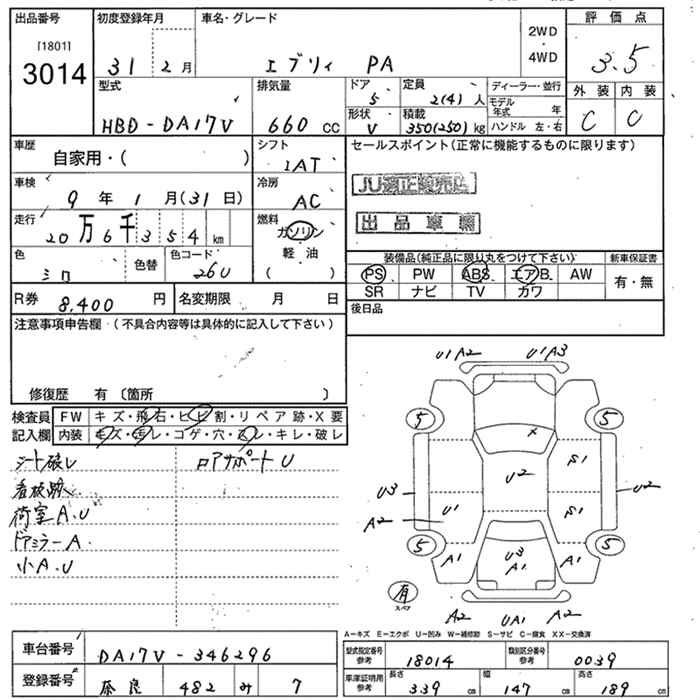 出品番号 初度登録年月 車名・グレード 2WD 評価点
[1801] 4WD
3014 31 2月 エブリィ PA 3.5
型式 排気量 ドア 定員 ディーラー・並行 外装 内装
5 2(4)人 モデル年式 年
HBD-DA17V 660cc 形状 積載 ハンドル 左・右 C C
V 350(250)kg
車歴 シフト セールスポイント(正常に機能するものに限ります)
自家用・( ) IAT
車検 冷房 JU適正販売店
9年1月(31日) AC
走行 燃料 出品車輌
20万6千354km ガソリン
色 色替 色コード 軽油 装備品(純正品に限り丸をつけて下さい) 新車保証書
シロ 26U ( ) PS PW ABS エアB. AW 有・無
R券 8,400円 名変期限 月 日 SR ナビ TV カワ
注意事項申告欄・(不具合内容等は具体的に記入して下さい) 後日品
修復歴 有〔箇所 〕
検査員 FW キズ・飛石・ヒビ割・リペア跡・X要
記入欄 内装 キズ・汚レ・コゲ・穴・スレ・キレ・破レ
シート破レ ロアサポートU
看板跡
荷室A.U
ドアミラーA.
小A.U
U1A2 U1A3
5 5
X
U2 S1
U3 U2
A2 U1 S1
5 5
A1 U3 A1 A1
有
スペア
A2 UA1 A2
A-キズ E-エクボ U-凹み W-補修跡 S-サビ C-腐食 XX-交換済
車台番号 DA17V-346296 型式指定番号 参考 18014 類別区分番号 参考 0039
登録番号 奈良 482 み 7 車庫証明用 参考 長さ 339cm 幅 147cm 高さ 189cm